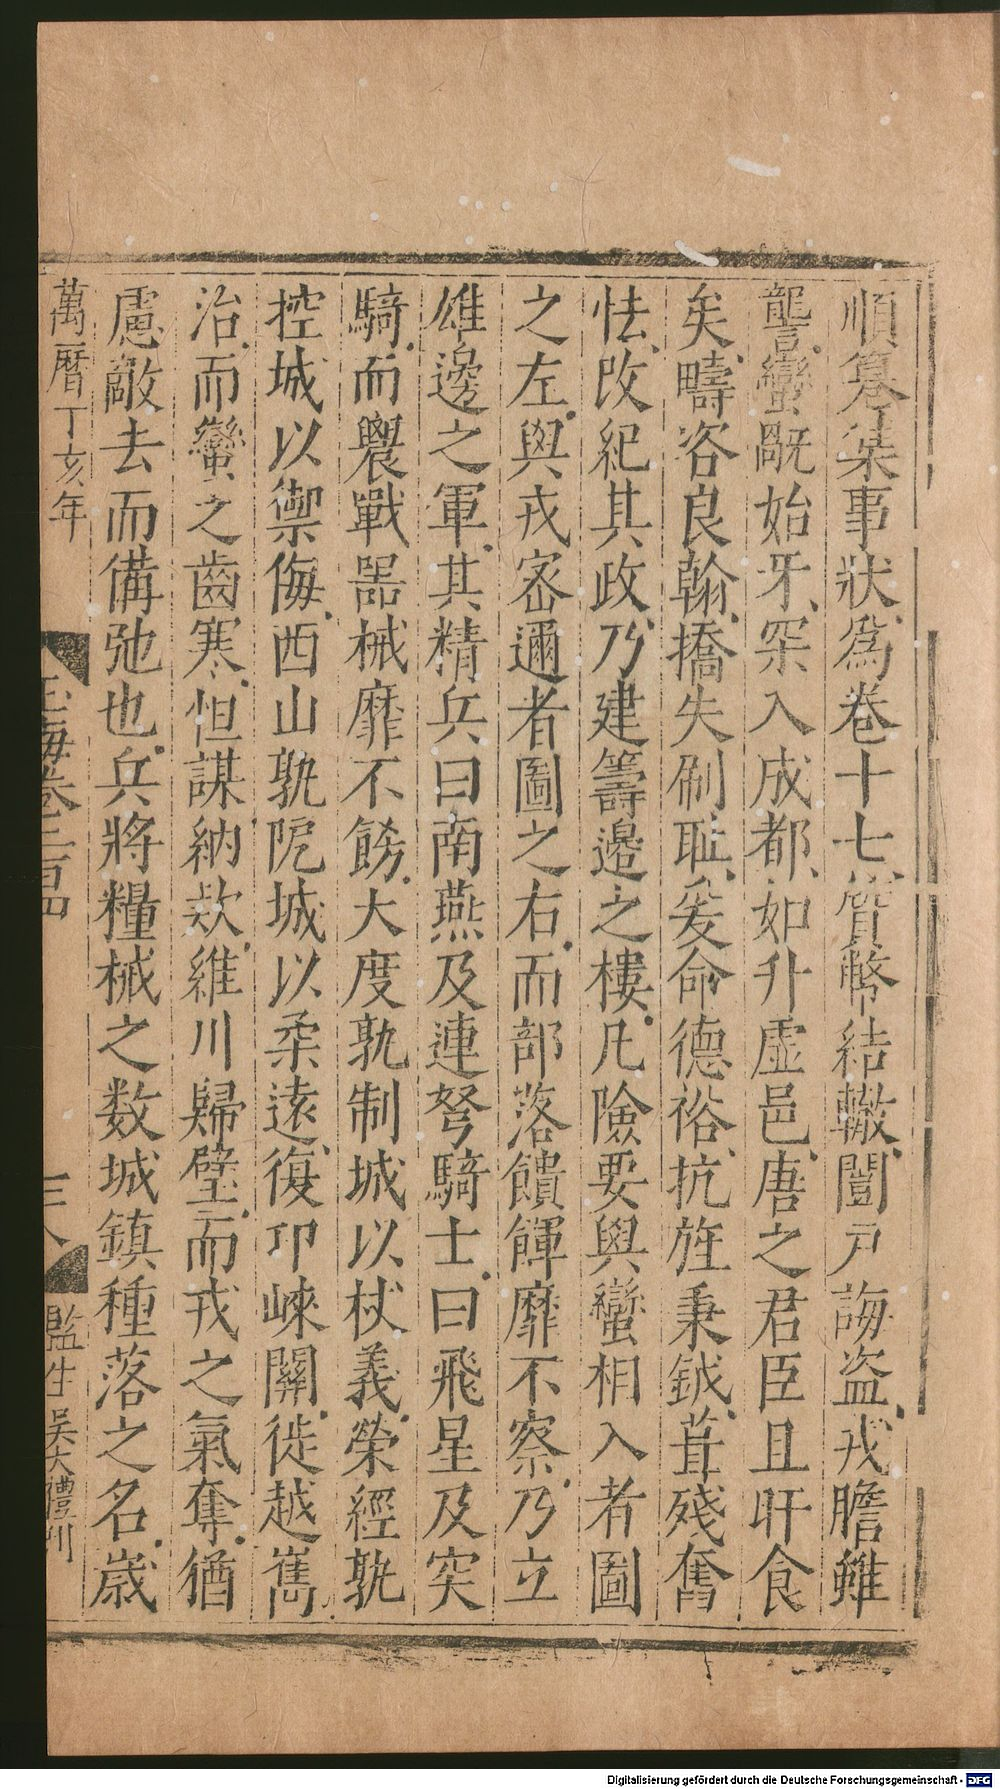 順纂集事狀爲卷十七質幣結轍闓戸誨盗戎膽雖
讋蠻毆始牙罙入成都如升虚邑唐之君臣且旰食
矣疇咨良翰撟失刷耻爰命德裕抗旌秉鉞葺殘奮
怯改紀其政乃建籌邊之樓凡險要與蠻相入者圖
之左與戎宻邇者圖之右而部落饋餫靡不察乃立
雄邊之軍其精兵曰南燕及連弩騎士曰飛星及突
騎而爨戰噐械靡不餝大度孰制城以杖義榮經孰
控城以禦侮西山孰阨城以柔遠復卭崍關徙越雋
治而蠻之齒寒怛謀納欵維川歸璧而戎之氣奪猶
慮敵去而備弛也兵將糧械之数城鎮種落之名歲
萬曆丁亥年
玉海卷二百四
三八
監生吴大禮刊
Digitalisierung gefördert durch die Deutsche Forschungsgemeinschaft - DFG